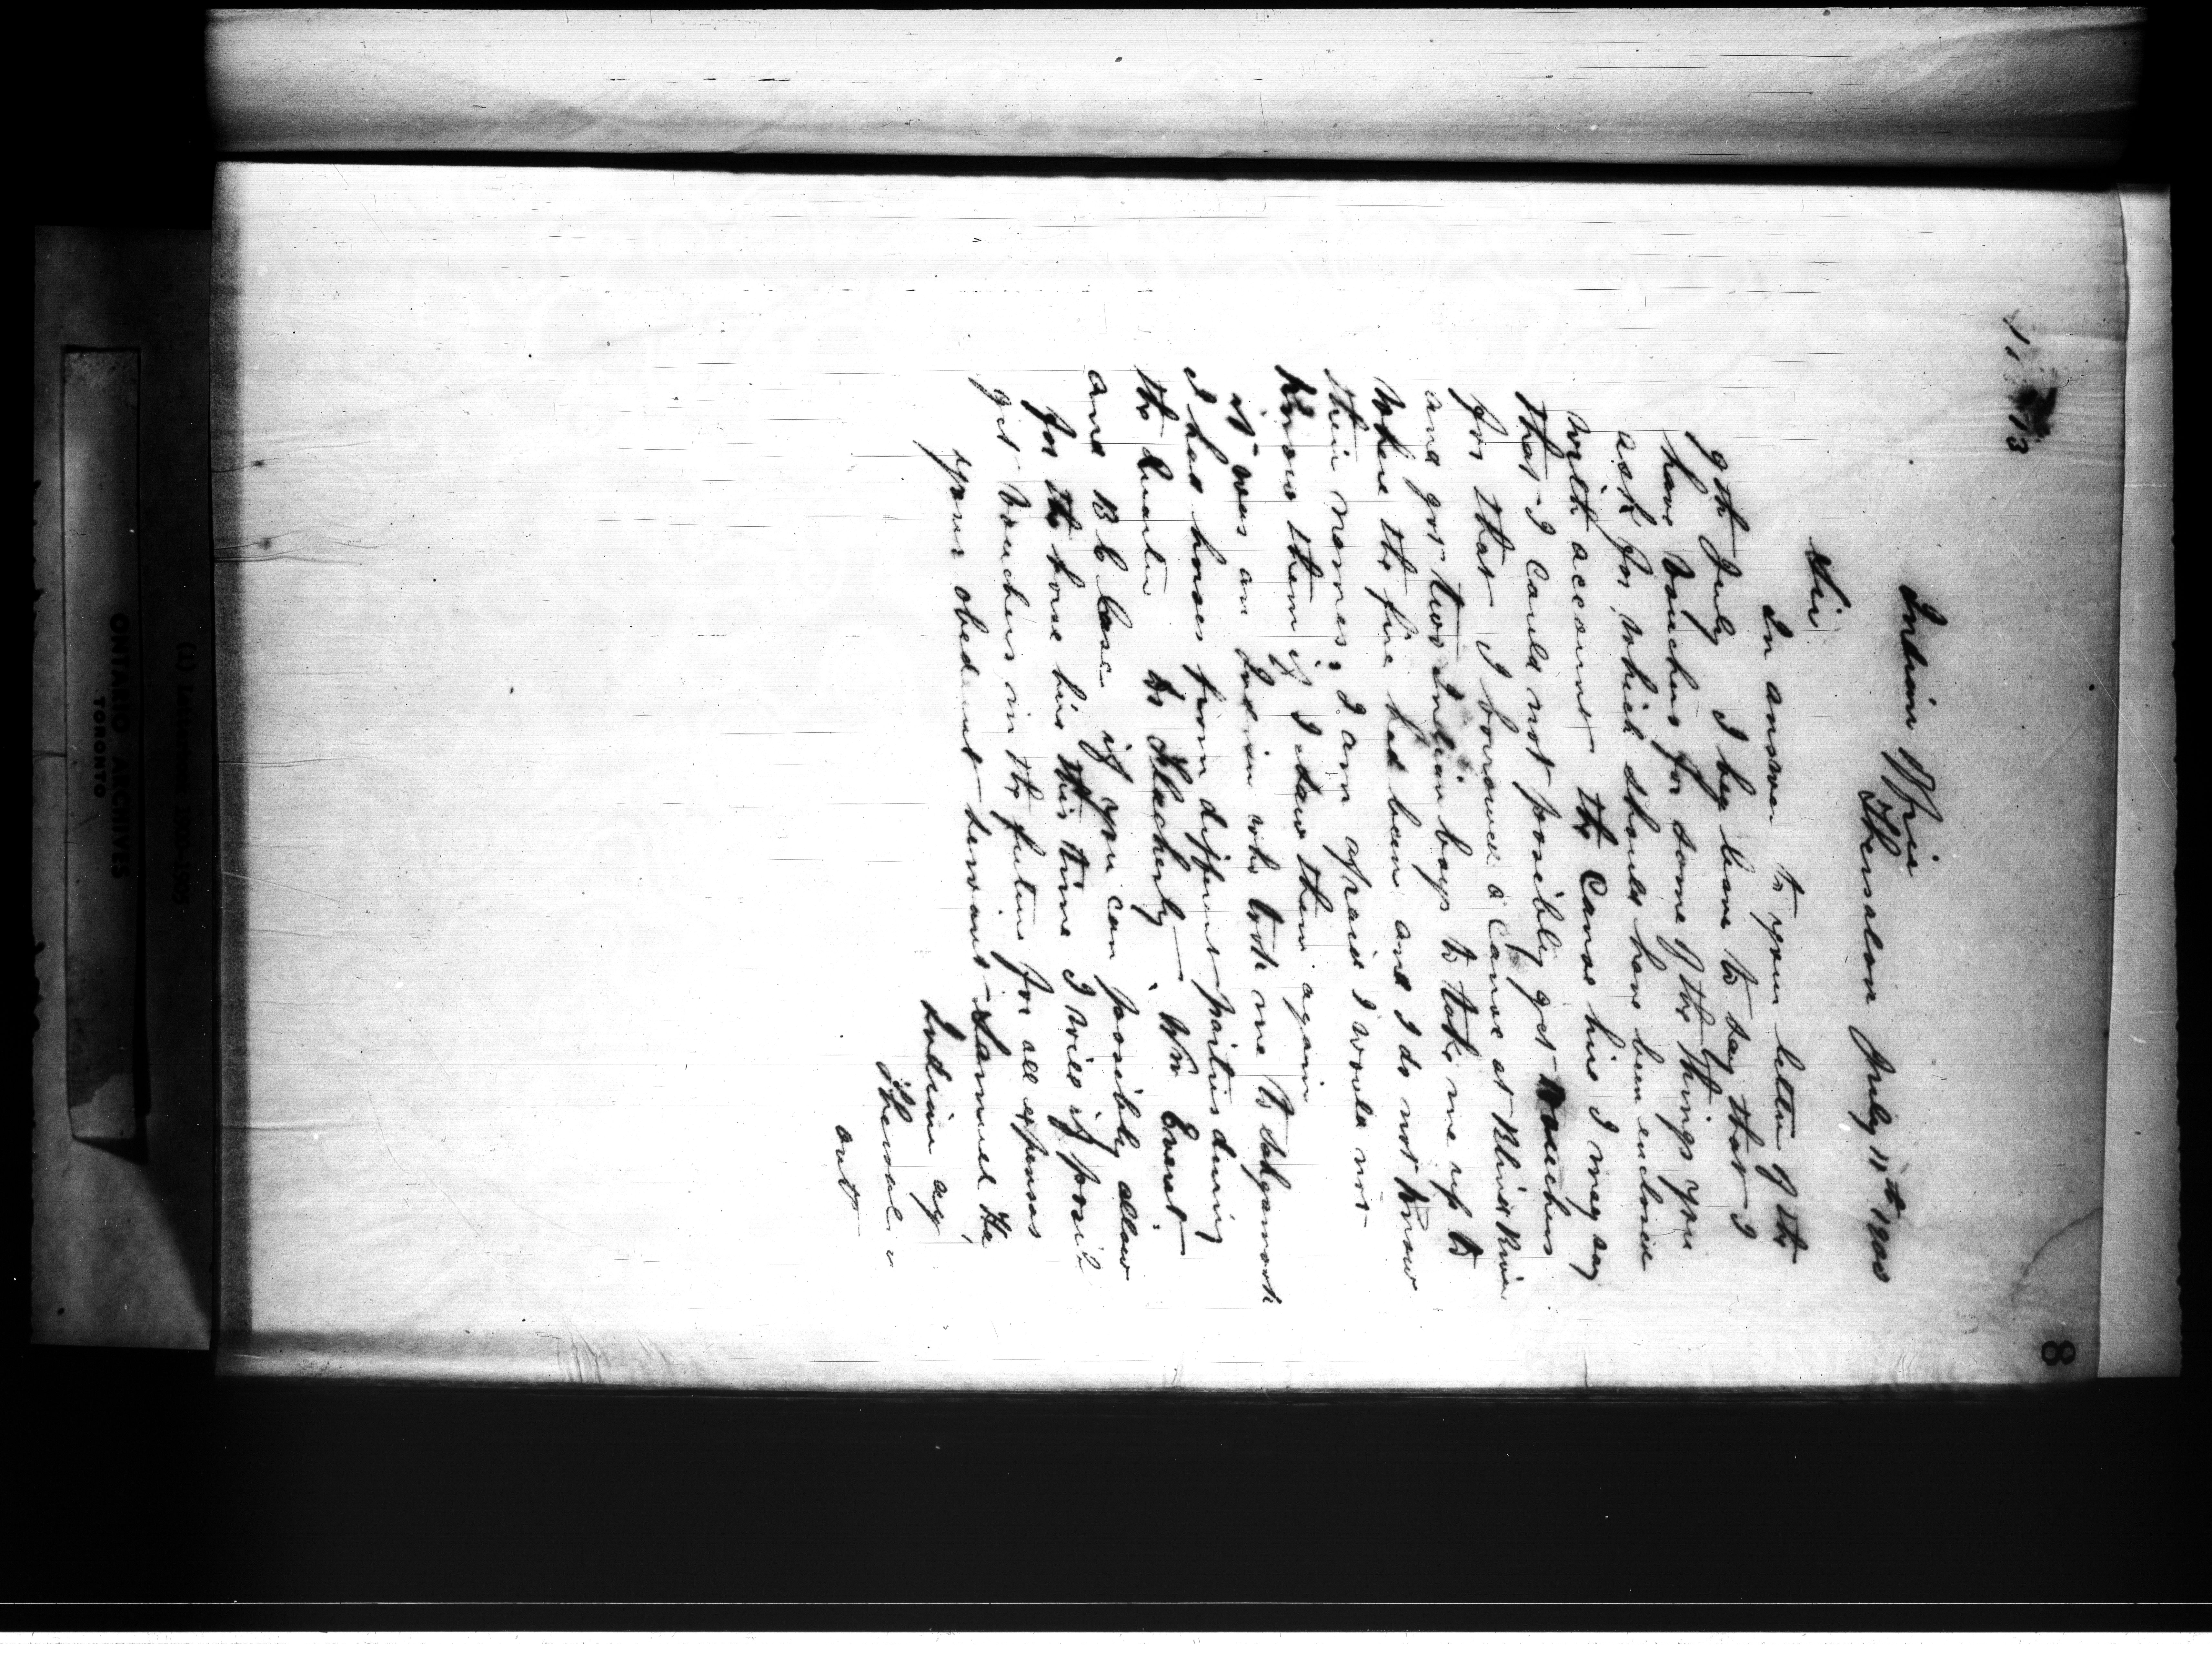 8
Indian Office
Thessalon July 11th 1900
Sir
In answer to your letter of the
9th July I beg leave to say that I
have Vouchers for some of the things you
ask for which should have been enclosed
with account the Canoe hire I may say
that I could not possibly get Vouchers
for that I borrowed a Canoe at Blind River
and got two Indian boys to take me up to
where the fire had been and I do not know
their names, I am afraid I would not
Know them if I saw them again
it was an Indian who took me to
I had horses from different parties during
the quarter to Wm Everet
and B C Case if you can possibly allow
for the horse hire this time I will if possible
get Vouchers in the future for all expenses
your obedient servant Samuel Ha
Indian ag
Thessalo
(1) Letterbook 1900-1905
ONTARIO ARCHIVES
TORONTO